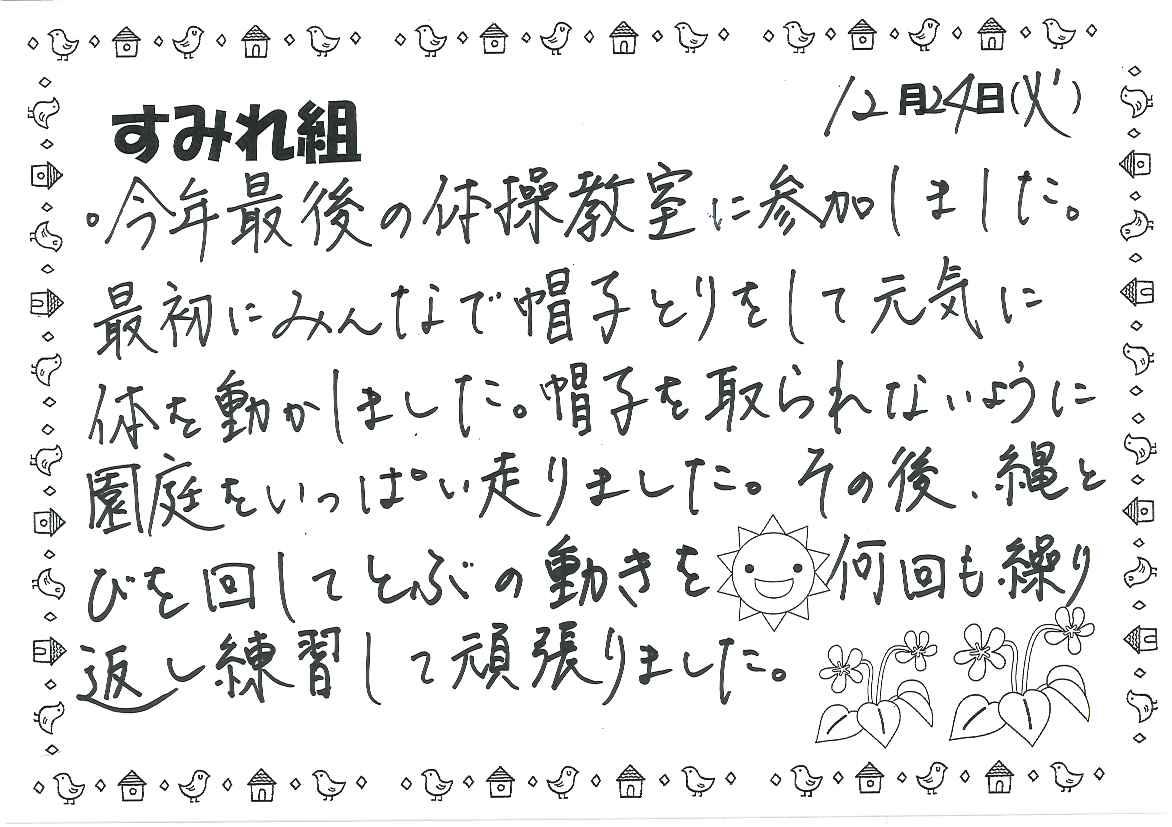 12月24日(火)
すみれ組
。今年最後の体操教室に参加しました。
最初にみんなで帽子とりをして元気に
体を動かしました。帽子を取られないように
園庭をいっぱい走りました。その後、縄と
びを回してとぶの動きを何回も繰り
返し練習して頑張りました。